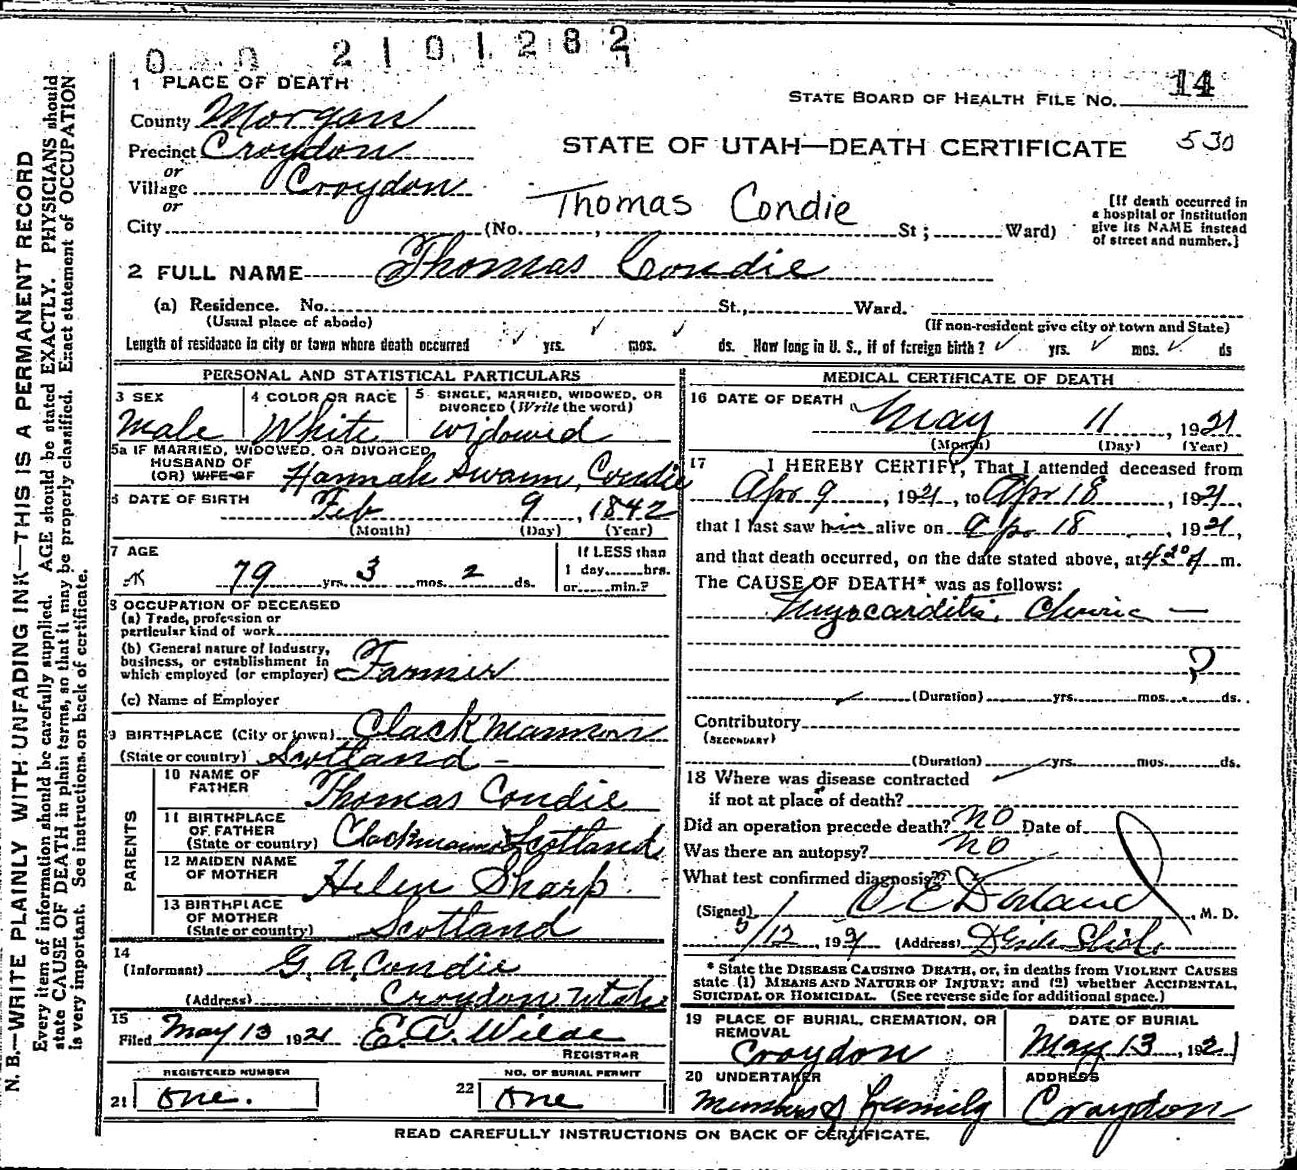 0 2101282
1 PLACE OF DEATH
STATE BOARD OF HEALTH FILE NO. 14
County Morgan
Precinct Croydon
STATE OF UTAH—DEATH CERTIFICATE 530
or
Village Croydon
or
Thomas Condie
[If death occurred in
a hospital or institution
give its NAME instead
of street and number.]
City (No. , St ; Ward)
2 FULL NAME Thomas Condie
(a) Residence. No. St., Ward.
(Usual place of abode) (If non-resident give city or town and State)
Length of residence in city or town where death occurred yrs. mos. ds. How long in U. S., if of foreign birth? yrs. mos. ds
PERSONAL AND STATISTICAL PARTICULARS
3 SEX
Male
4 COLOR OR RACE
White
5 SINGLE, MARRIED, WIDOWED, OR
DIVORCED (Write the word)
widowed
5a IF MARRIED, WIDOWED, OR DIVORCED
HUSBAND OF
(OR) WIFE OF Hannah Swann Condie
6 DATE OF BIRTH
Feb 9, 1842
(Month) (Day) (Year)
7 AGE
79 yrs. 3 mos. 2 ds.
If LESS than
1 day, hrs.
or min.?
8 OCCUPATION OF DECEASED
(a) Trade, profession or
particular kind of work
(b) General nature of Industry,
business, or establishment in
which employed (or employer) Farmer
(c) Name of Employer
9 BIRTHPLACE (City or town) Clackmannan
(State or country) Scotland -
PARENTS
10 NAME OF
FATHER Thomas Condie
11 BIRTHPLACE
OF FATHER
(State or country) Clackmannan Scotland
12 MAIDEN NAME
OF MOTHER Helen Sharp
13 BIRTHPLACE
OF MOTHER
(State or country) Scotland
14
(Informant) G. A. Condie
(Address) Croydon Utah
15
Filed May 13 1921 E. A. Wilde
REGISTRAR
REGISTERED NUMBER
21 One.
NO. OF BURIAL PERMIT
22 One
MEDICAL CERTIFICATE OF DEATH
16 DATE OF DEATH
May 11, 1921
(Month) (Day) (Year)
17 I HEREBY CERTIFY, That I attended deceased from
Apr 9, 1921, to Apr 18, 1921,
that I last saw him alive on Apr 18, 1921,
and that death occurred, on the date stated above, at 4 30 A m.
The CAUSE OF DEATH* was as follows:
Myocarditis, Chronic —
?
(Duration) yrs. mos. ds.
Contributory
(SECONDARY)
(Duration) yrs. mos. ds.
18 Where was disease contracted
if not at place of death?
Did an operation precede death? NO Date of
Was there an autopsy? NO
What test confirmed diagnosis?
(Signed) , M. D.
5/12, 1921 (Address)
* State the DISEASE CAUSING DEATH, or, in deaths from VIOLENT CAUSES
state (1) MEANS AND NATURE OF INJURY; and (2) whether ACCIDENTAL,
SUICIDAL OR HOMICIDAL. (See reverse side for additional space.)
19 PLACE OF BURIAL, CREMATION, OR
REMOVAL
Croydon
DATE OF BURIAL
May 13, 1921
20 UNDERTAKER
Members of family
ADDRESS
Croydon
READ CAREFULLY INSTRUCTIONS ON BACK OF CERTIFICATE.
N. B.—WRITE PLAINLY WITH UNFADING INK—THIS IS A PERMANENT RECORD
Every item of information should be carefully supplied. AGE should be stated EXACTLY. PHYSICIANS should
state CAUSE OF DEATH in plain terms, so that it may be properly classified. Exact statement of OCCUPATION
is very important. See instructions on back of certificate.